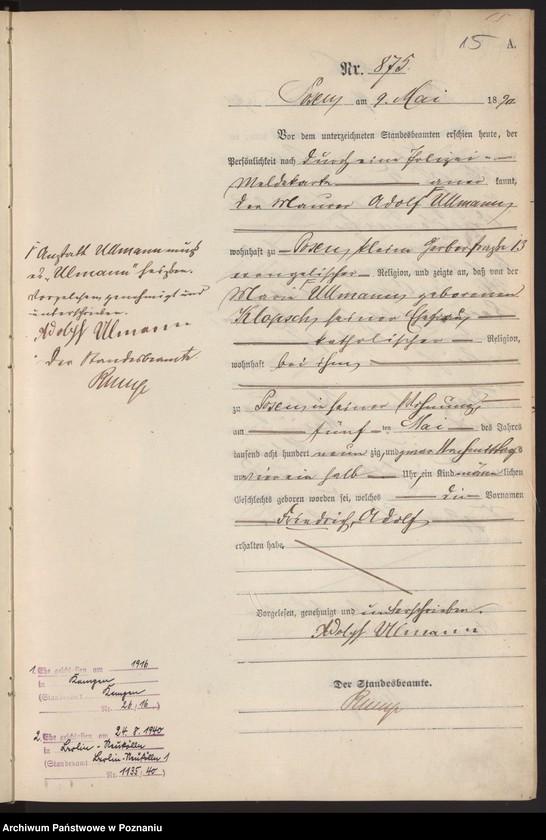 15
15 A.
Nr. 875.
Posen, am 9. Mai 1890
Vor dem unterzeichneten Standesbeamten erschien heute, der
Persönlichkeit nach durch eine Polizei-
Meldekarte anerkannt,
der Maurer Adolf Ullmann,
wohnhaft zu Posen, kleine Gerberstraße 13
evangelischer Religion, und zeigte an, daß von der
Marie Ullmann, geborenen
Klopsch, seiner Ehefrau,
katholischer Religion,
wohnhaft bei ihm,
zu Posen, in seiner Wohnung,
am fünften Mai des Jahres
tausend acht hundert neunzig, und zwar Nachmittags
um vier ein halb Uhr, ein Kind männlichen
Geschlechts geboren worden sei, welches die Vornamen
Friedrich, Adolf,
erhalten habe.
Vorgelesen, genehmigt und unterschrieben.
Adolph Ulmann
Der Standesbeamte.
Anstatt Ullmann muß
es "Ulmann" heißen.
Vorgelesen genehmigt und
unterschrieben.
Adolph Ulmann
Der Standesbeamte
1. Ehe geschlossen am 1916
in
(Standesamt
Nr. 26/16)
2. Ehe geschlossen am 24.8.1940
in Berlin-Neukölln
(Standesamt Berlin-Neukölln 1
Nr. 1135/40)
Archiwum Państwowe w Poznaniu